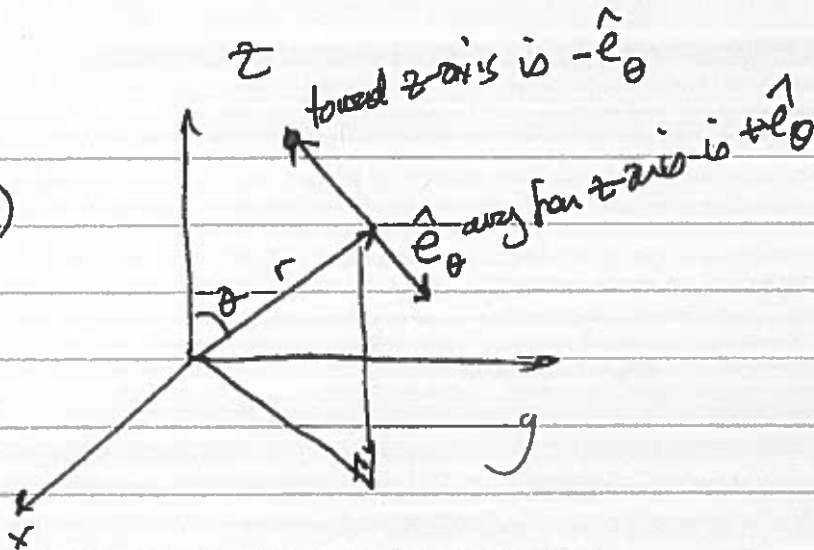 z
toward z-axis is -ê_θ
ê_θ away from z-axis is +ê_θ
)
r
θ
y
x